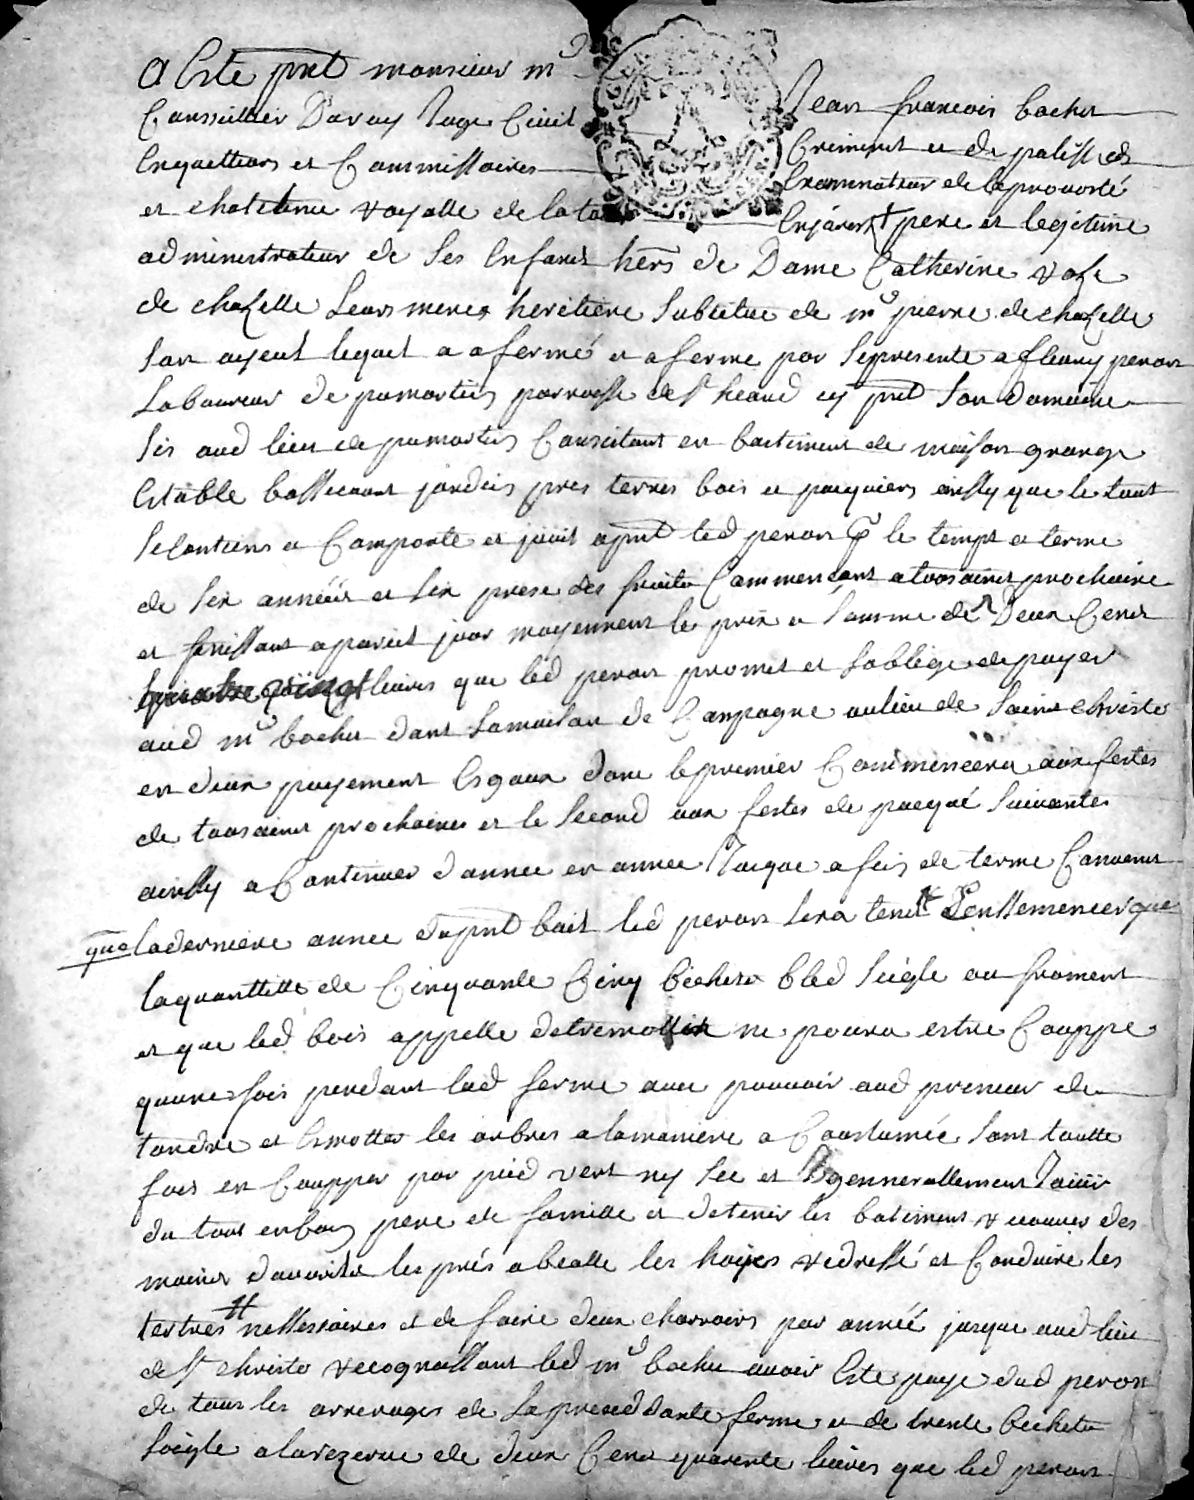 A Esté pnt monsieur mᵉ Jean francois bochu
Conseillier Du roy Juge Civil Criminel et de polisse
Enquetteur et Commissaires Examinateur de la provosté
et chatelenie royalle de la to pere et legitime
administrateur de ses Enfants hers de Dame Catherine roze
de chazelle Leurs meres heretiere substitue de mʳ pierre de chazelle
son ayeul lequel a afermé et aferme par se presente a fleury peron
Laboureur de pamortin parroisse de sᵗ heand cy pnt son domaine
sis aud lieu de pamortin Consistant en bastiment de maison grange
Estable basse court jardin pres terres bois et paquiers ainsy que le tout
se Contiens et Comporte et jouit apnt led peron p le temps et terme
de six années et six prese des fruits Commencant a toosaint prochaine
et finissant a pareil jour moyennent le prix et somme de Deux Cent
quatre vingt livres que led peron promet et soblige de payer
aud mʳ bochu dans sa maison de Campagne au lieu de saint christo
en deux payement Esgaux dont le premier Commencera aux festes
de toosaint prochaines et le second aux festes de pacque suivantes
ainsy a Continuer d'annee en annee Jusque a fin de terme Convenu
que la derniere annee du pnt bail led peron sera tenu d'enssemencer que
la quantitte de Cinquante Cinq bichets bled seigle ou froment
et que led bois appelle ne poura estre Couppe
qu'une fois pendant lad ferme avec pouvoir aud preneur de
tondre et Esmotter les arbres a la maniere a Coustumée sans toutte
fois en Coupper par pied vert ny sec et gennerallement Jouir
du tout en bon pere de famille et detenir les batiment recouver des
mains d'ouvrier les prés abealle les hayes redressé et Conduire les
tertres nessessaires et de faire deux charroirs par année jusque aud lieu
de sᵗ christo recognoissant led mʳ bochu avoir Esté paye dud peron
de tous les arrerages de sa preseddante ferme et de trente bichets
seigle a la rezerve de deux Cent quarente livres que led peron